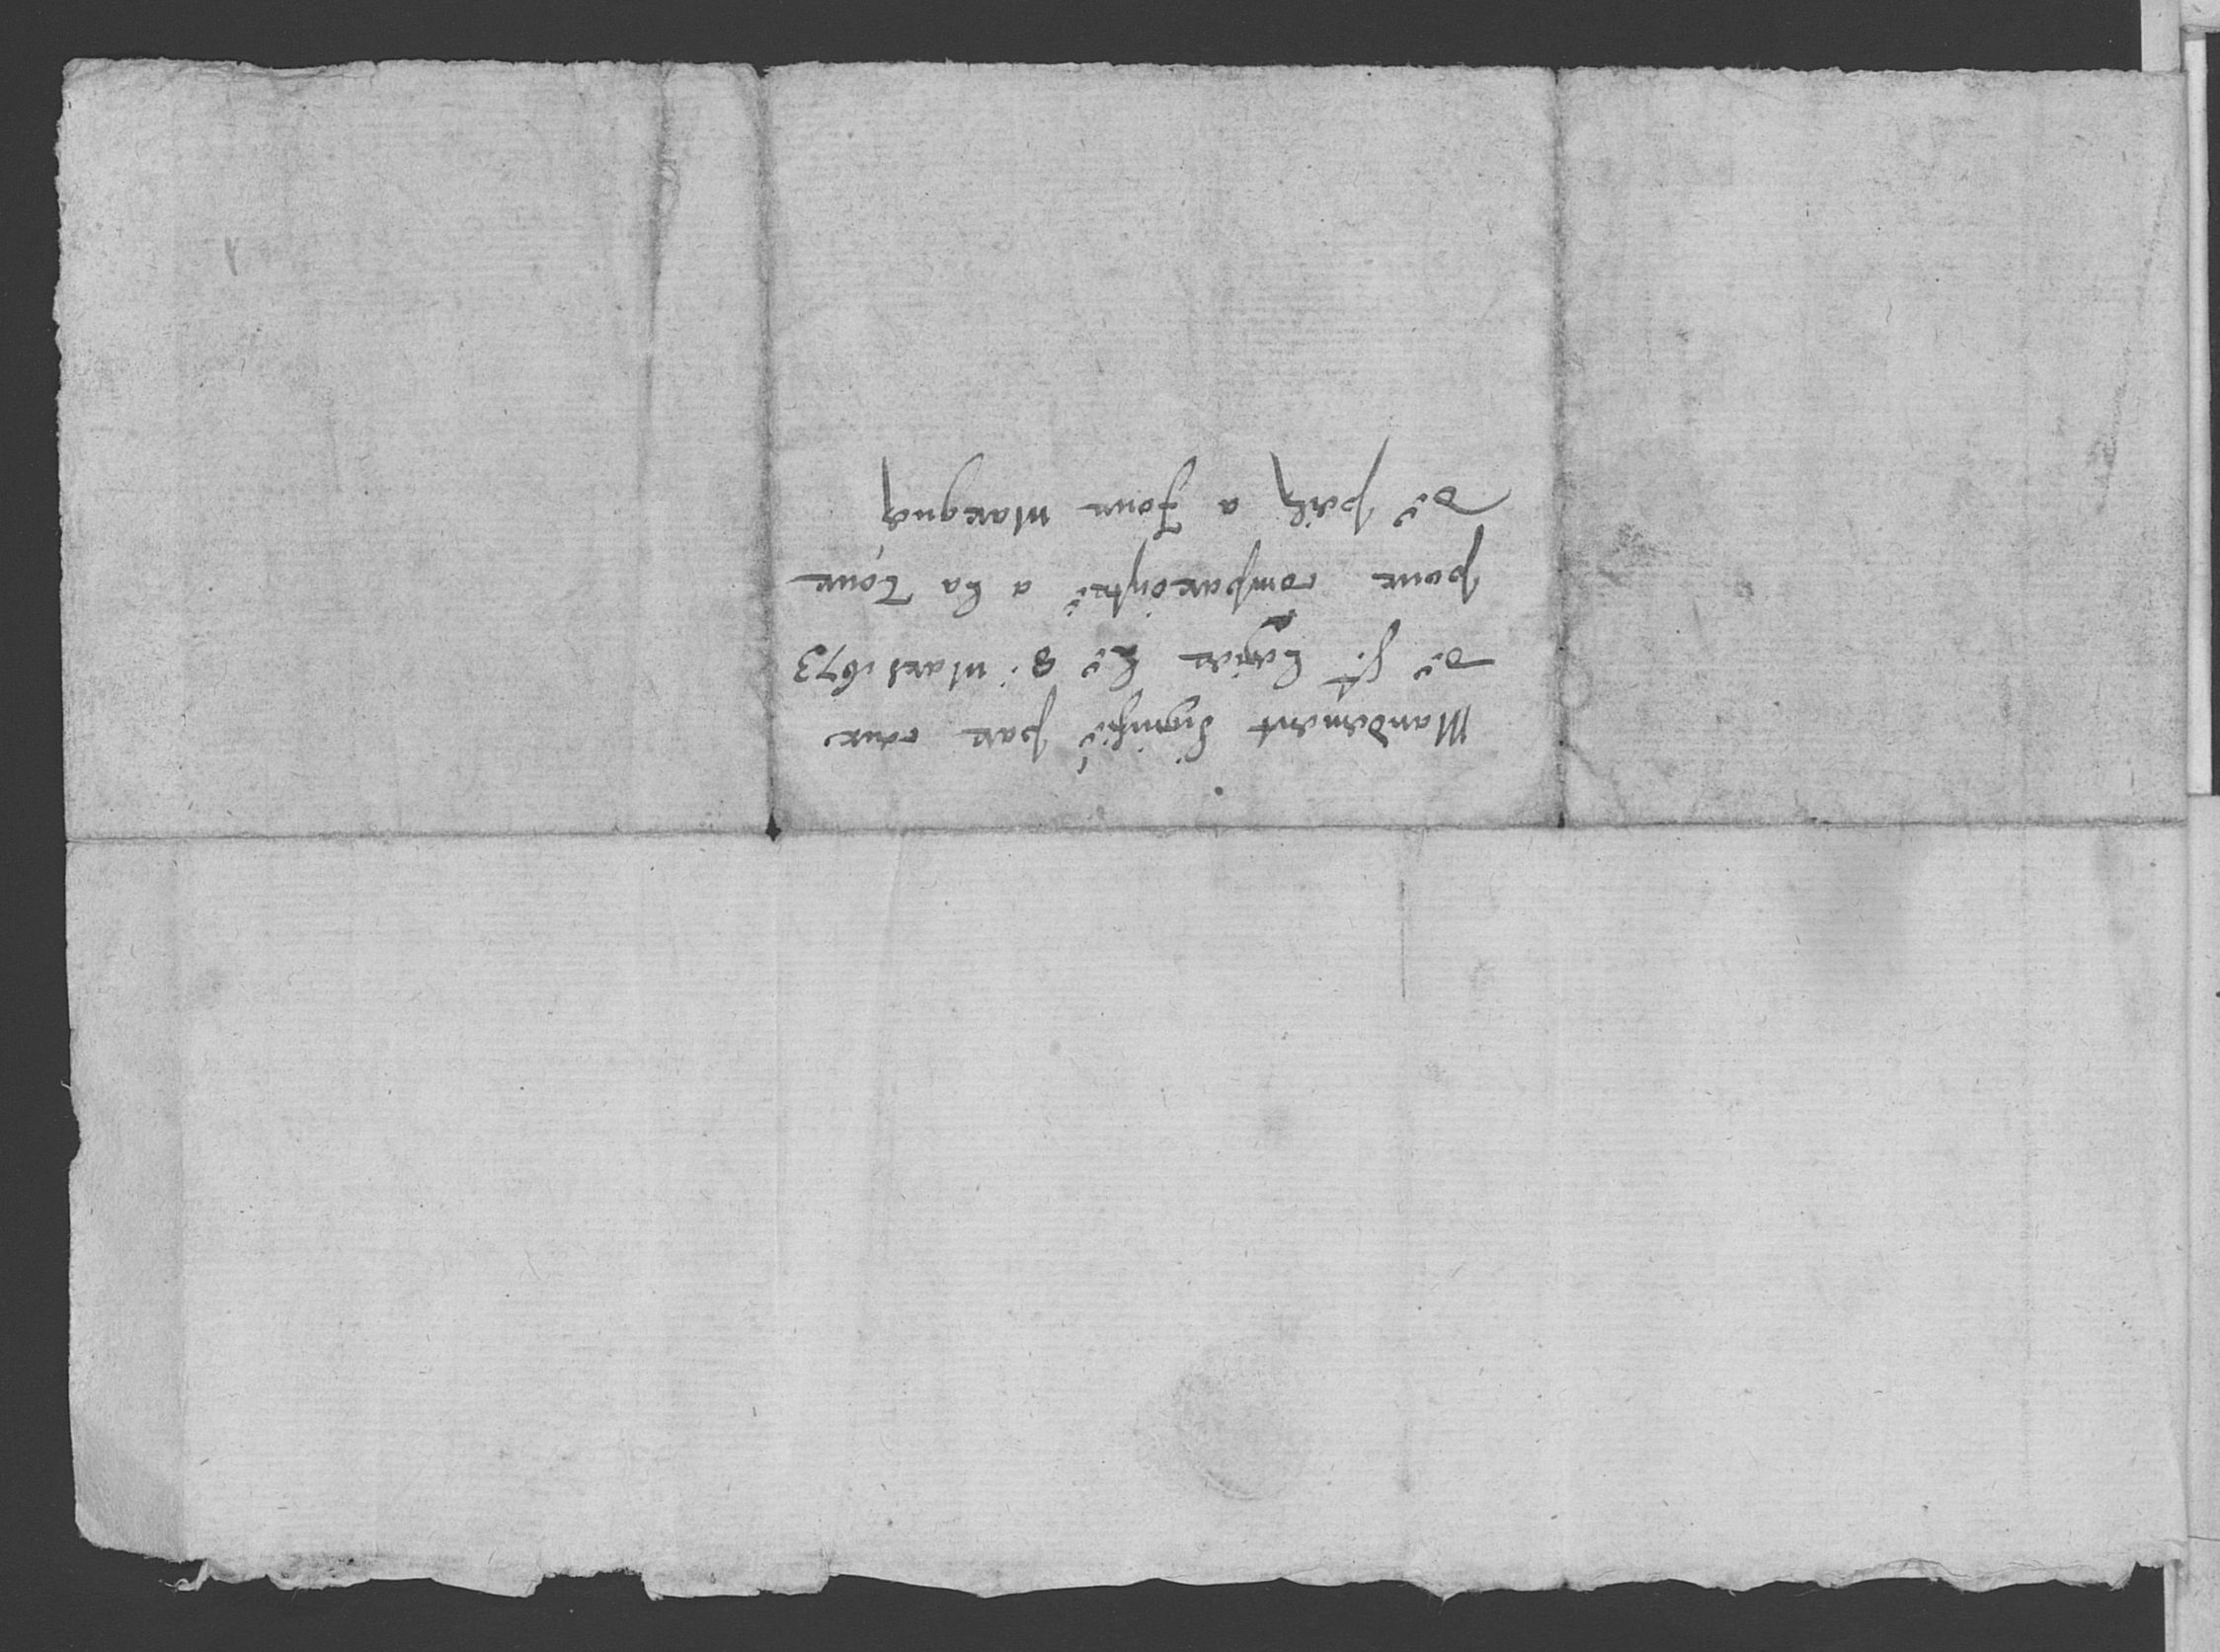 Mandement Signifié par ceux
de st. Legier le 8. Mars 1673
pour comparoistre a la Tour
de peilz a Jour Marquez